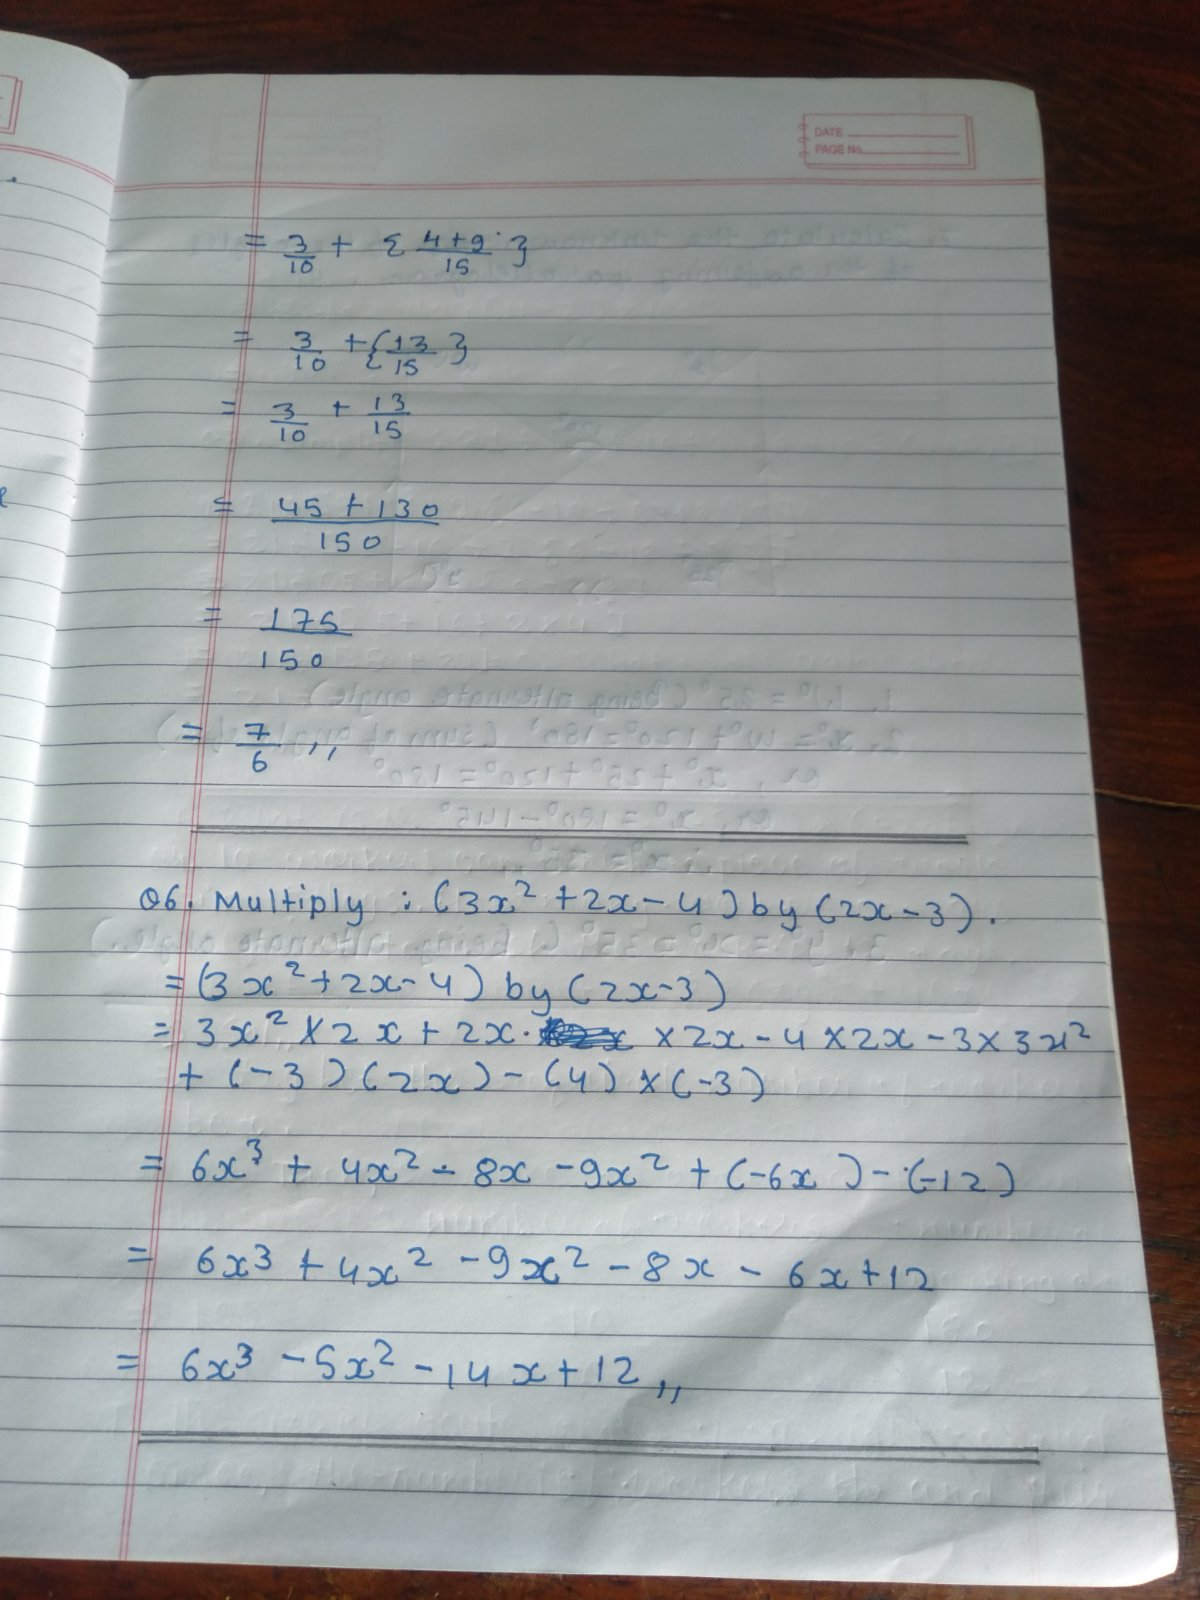 DATE
PAGE No.
= 3/10 + { 4+9/15 }
= 3/10 + { 13/15 }
= 3/10 + 13/15
= 45 + 130/150
= 175/150
= 7/6 ,,
Q6. Multiply : (3x² + 2x - 4) by (2x - 3).
= (3x² + 2x - 4) by (2x - 3)
= 3x² × 2x + 2x · × 2x - 4 × 2x - 3 × 3x²
+ (-3) (2x) - (4) × (-3)
= 6x³ + 4x² - 8x - 9x² + (-6x) - (-12)
= 6x³ + 4x² - 9x² - 8x - 6x + 12
= 6x³ - 5x² - 14x + 12 ,,